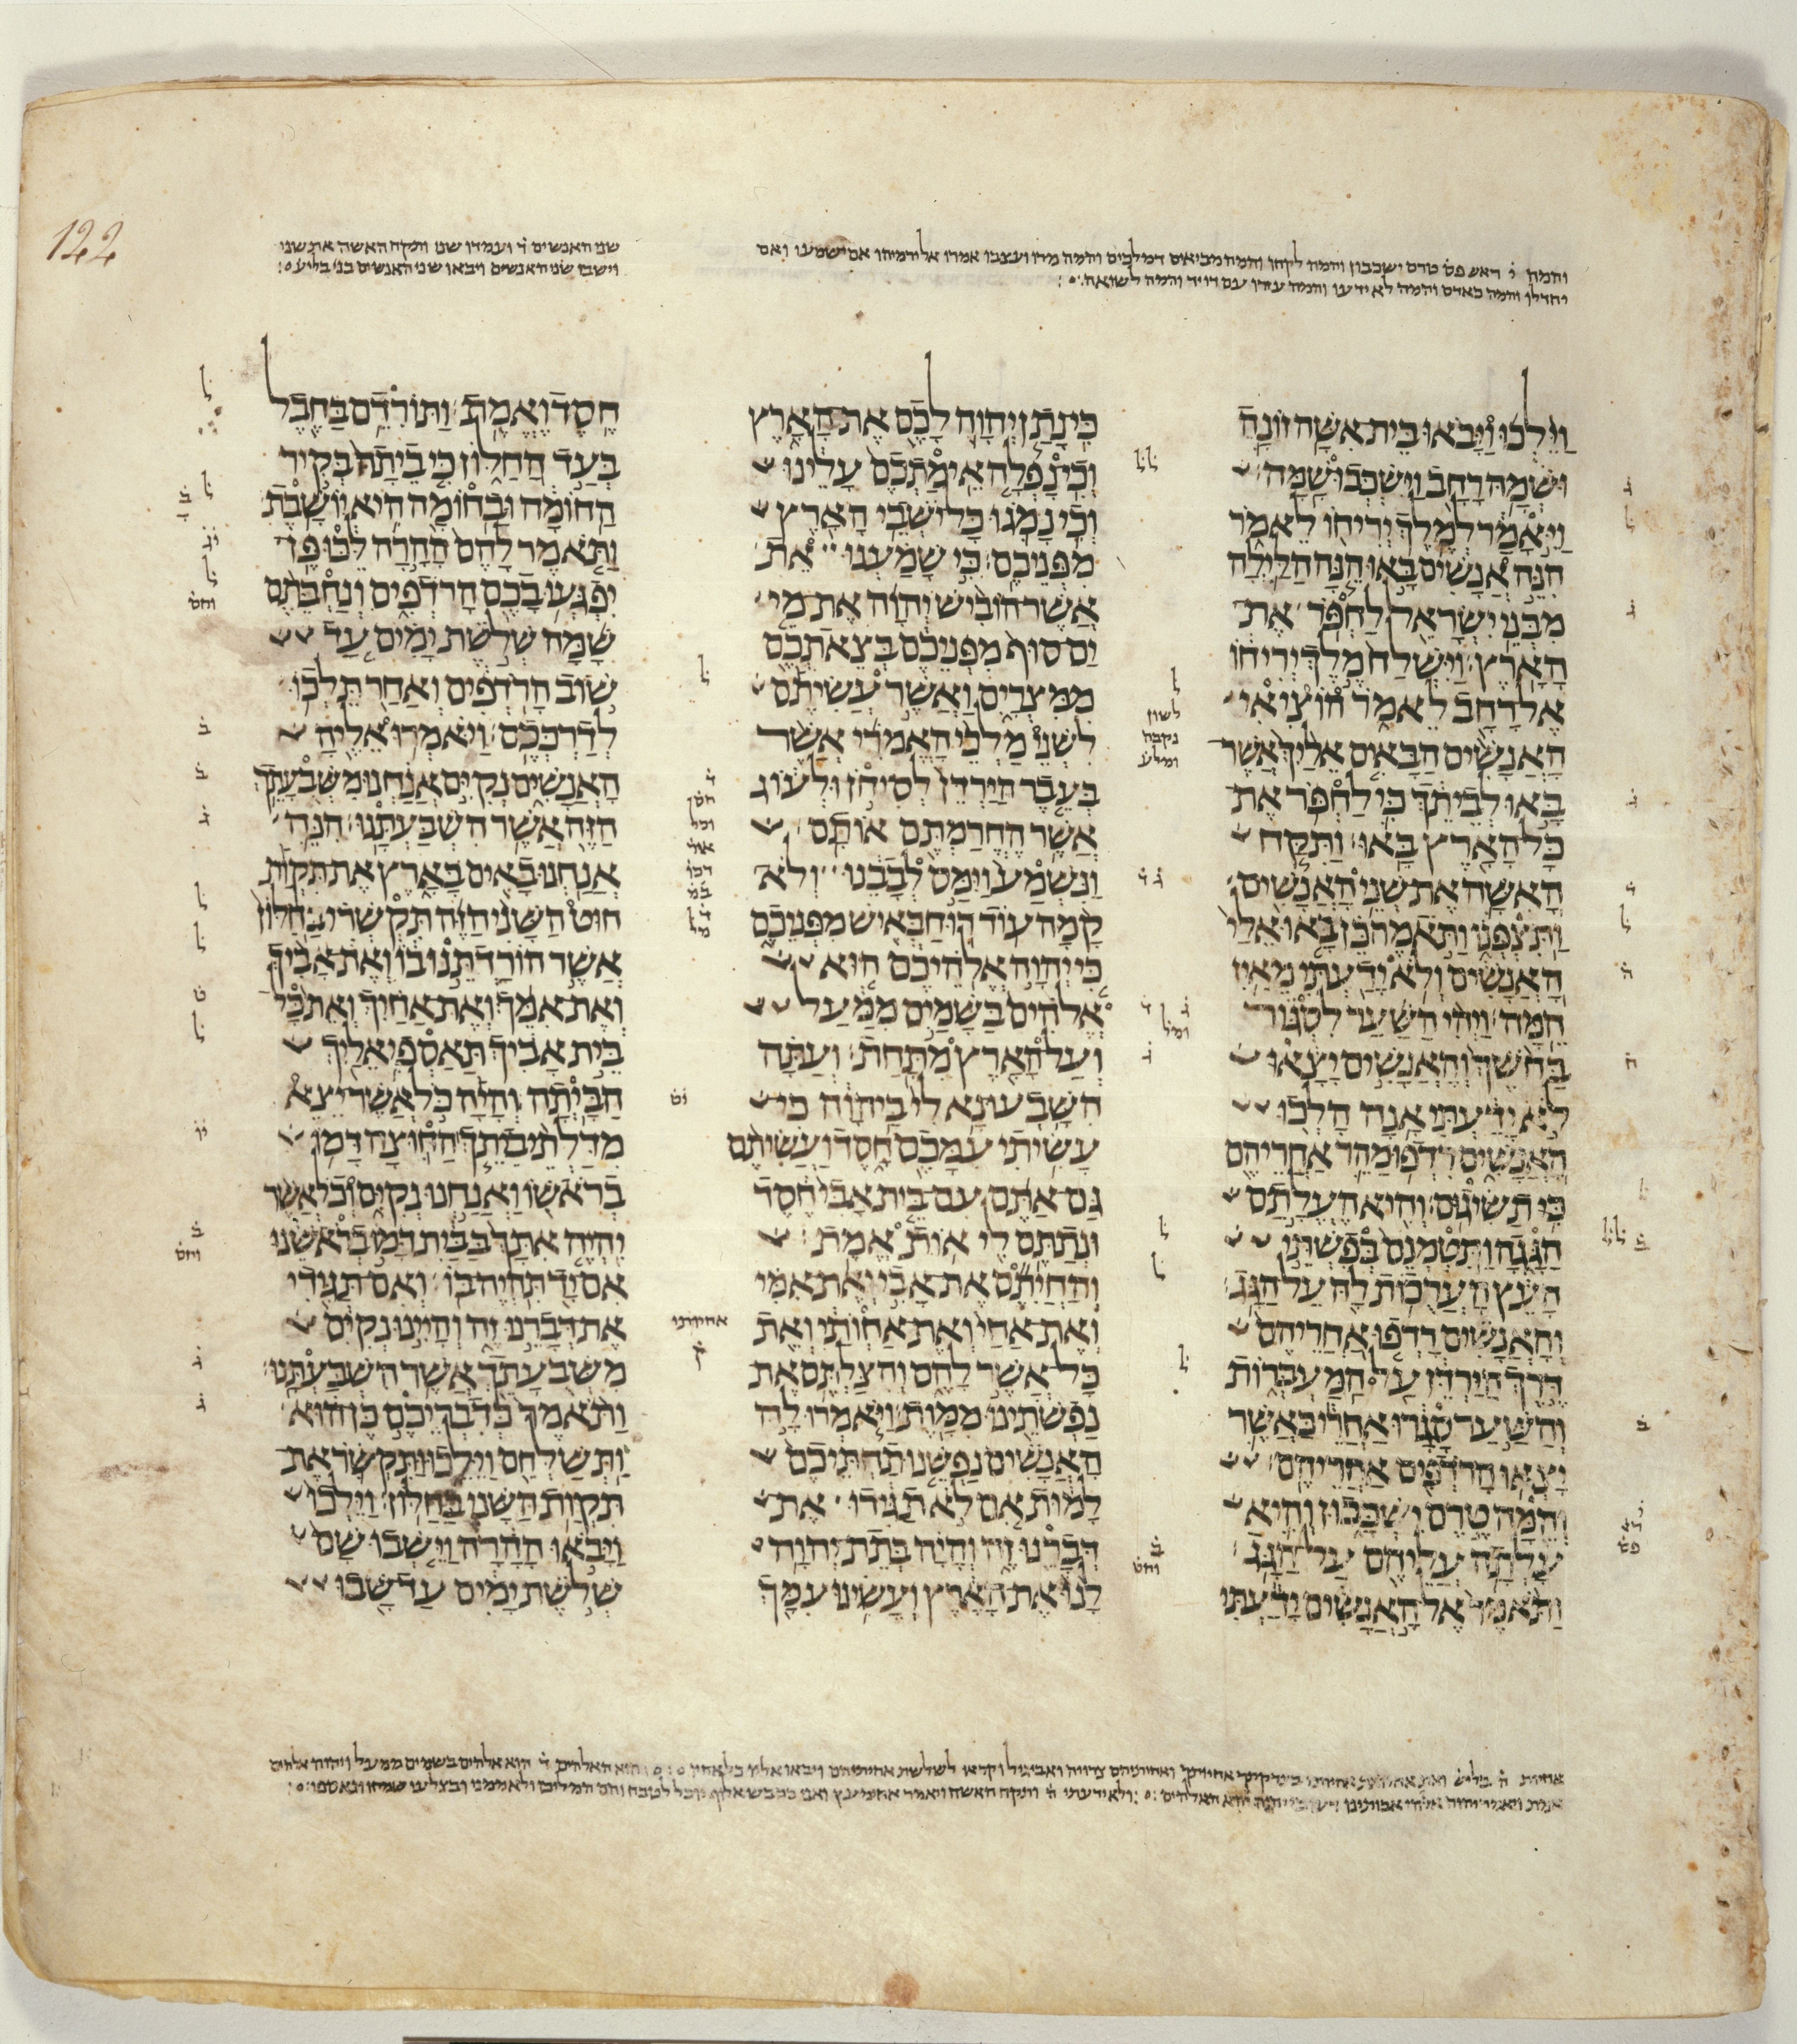 והמה ז̇ ראש פס̇ טרם ישכבון והמה לקחו והמה מביאים דמלכים והמה מרו ועצבו אמרו אל ירמיהו אם ישמעו ואם
יחדלו והמה כאדם והמה לא ידעו והמה עם דויד והמה לשואה׃
שני האנשים ועמדו שני ותקח האשה את שני
וישבו שני האנשים ויבאו שני האנשים בני בליעל׃
וַיֵּלְכוּ וַיָּבֹאוּ בֵּית אִשָּׁה זוֹנָה
וּשְׁמָהּ רָחָב וַיִּשְׁכְּבוּ שָׁמָּה׃
וַיֵּאָמַר לְמֶלֶךְ יְרִיחוֹ לֵאמֹר
הִנֵּה אֲנָשִׁים בָּאוּ הֵנָּה הַלַּיְלָה
מִבְּנֵי יִשְׂרָאֵל לַחְפֹּר אֶת
הָאָרֶץ׃ וַיִּשְׁלַח מֶלֶךְ יְרִיחוֹ
אֶל רָחָב לֵאמֹר הוֹצִיאִי
הָאֲנָשִׁים הַבָּאִים אֵלַיִךְ אֲשֶׁר
בָּאוּ לְבֵיתֵךְ כִּי לַחְפֹּר אֶת
כָּל הָאָרֶץ בָּאוּ׃ וַתִּקַּח
הָאִשָּׁה אֶת שְׁנֵי הָאֲנָשִׁים
וַתִּצְפְּנוֹ וַתֹּאמֶר כֵּן בָּאוּ אֵלַי
הָאֲנָשִׁים וְלֹא יָדַעְתִּי מֵאַיִן
הֵמָּה׃ וַיְהִי הַשַּׁעַר לִסְגּוֹר
בַּחֹשֶׁךְ וְהָאֲנָשִׁים יָצָאוּ
לֹא יָדַעְתִּי אָנָה הָלְכוּ
הָאֲנָשִׁים רִדְפוּ מַהֵר אַחֲרֵיהֶם
כִּי תַשִּׂיגוּם׃ וְהִיא הֶעֱלָתַם
הַגָּגָה וַתִּטְמְנֵם בְּפִשְׁתֵּי
הָעֵץ הָעֲרֻכוֹת לָהּ עַל הַגָּג׃
וְהָאֲנָשִׁים רָדְפוּ אַחֲרֵיהֶם
דֶּרֶךְ הַיַּרְדֵּן עַל הַמַּעְבְּרוֹת
וְהַשַּׁעַר סָגָרוּ אַחֲרֵי כַּאֲשֶׁר
יָצְאוּ הָרֹדְפִים אַחֲרֵיהֶם׃
וְהֵמָּה טֶרֶם יִשְׁכָּבוּן וְהִיא
עָלְתָה עֲלֵיהֶם עַל הַגָּג׃
וַתֹּאמֶר אֶל הָאֲנָשִׁים יָדַעְתִּי
כִּי נָתַן יְהוָה לָכֶם אֶת הָאָרֶץ
וְכִי נָפְלָה אֵימַתְכֶם עָלֵינוּ
וְכִי נָמֹגוּ כָּל יֹשְׁבֵי הָאָרֶץ
מִפְּנֵיכֶם׃ כִּי שָׁמַעְנוּ אֵת
אֲשֶׁר הוֹבִישׁ יְהוָה אֶת מֵי
יַם סוּף מִפְּנֵיכֶם בְּצֵאתְכֶם
מִמִּצְרָיִם וַאֲשֶׁר עֲשִׂיתֶם
לִשְׁנֵי מַלְכֵי הָאֱמֹרִי אֲשֶׁר
בְּעֵבֶר הַיַּרְדֵּן לְסִיחֹן וּלְעוֹג
אֲשֶׁר הֶחֱרַמְתֶּם אוֹתָם׃
וַנִּשְׁמַע וַיִּמַּס לְבָבֵנוּ וְלֹא
קָמָה עוֹד רוּחַ בְּאִישׁ מִפְּנֵיכֶם
כִּי יְהוָה אֱלֹהֵיכֶם הוּא
אֱלֹהִים בַּשָּׁמַיִם מִמַּעַל
וְעַל הָאָרֶץ מִתָּחַת׃ וְעַתָּה
הִשָּׁבְעוּ נָא לִי בַּיהוָה כִּי
עָשִׂיתִי עִמָּכֶם חָסֶד וַעֲשִׂיתֶם
גַּם אַתֶּם עִם בֵּית אָבִי חֶסֶד
וּנְתַתֶּם לִי אוֹת אֱמֶת׃
וְהַחֲיִתֶם אֶת אָבִי וְאֶת אִמִּי
וְאֶת אַחַי וְאֶת אַחְוֹתַי וְאֵת
כָּל אֲשֶׁר לָהֶם וְהִצַּלְתֶּם אֶת
נַפְשֹׁתֵינוּ מִמָּוֶת׃ וַיֹּאמְרוּ לָהּ
הָאֲנָשִׁים נַפְשֵׁנוּ תַחְתֵּיכֶם
לָמוּת אִם לֹא תַגִּידוּ אֶת
דְּבָרֵנוּ זֶה וְהָיָה בְּתֵת יְהוָה
לָנוּ אֶת הָאָרֶץ וְעָשִׂינוּ עִמָּךְ
חֶסֶד וֶאֱמֶת׃ וַתּוֹרִדֵם בַּחֶבֶל
בְּעַד הַחַלּוֹן כִּי בֵיתָהּ בְּקִיר
הַחוֹמָה וּבַחוֹמָה הִיא יוֹשָׁבֶת׃
וַתֹּאמֶר לָהֶם הָהָרָה לֵּכוּ פֶּן
יִפְגְּעוּ בָכֶם הָרֹדְפִים וְנַחְבֵּתֶם
שָׁמָּה שְׁלֹשֶׁת יָמִים עַד
שׁוֹב הָרֹדְפִים וְאַחַר תֵּלְכוּ
לְדַרְכְּכֶם׃ וַיֹּאמְרוּ אֵלֶיהָ
הָאֲנָשִׁים נְקִיִּם אֲנַחְנוּ מִשְּׁבֻעָתֵךְ
הַזֶּה אֲשֶׁר הִשְׁבַּעְתָּנוּ׃ הִנֵּה
אֲנַחְנוּ בָאִים בָּאָרֶץ אֶת תִּקְוַת
חוּט הַשָּׁנִי הַזֶּה תִּקְשְׁרִי בַּחַלּוֹן
אֲשֶׁר הוֹרַדְתֵּנוּ בוֹ וְאֶת אָבִיךְ
וְאֶת אִמֵּךְ וְאֶת אַחַיִךְ וְאֵת כָּל
בֵּית אָבִיךְ תַּאַסְפִי אֵלַיִךְ
הַבָּיְתָה׃ וְהָיָה כֹּל אֲשֶׁר יֵצֵא
מִדַּלְתֵי בֵיתֵךְ הַחוּצָה דָּמוֹ
בְרֹאשׁוֹ וַאֲנַחְנוּ נְקִיִּם וְכֹל אֲשֶׁר
יִהְיֶה אִתָּךְ בַּבַּיִת דָּמוֹ בְרֹאשֵׁנוּ
אִם יָד תִּהְיֶה בּוֹ׃ וְאִם תַּגִּידִי
אֶת דְּבָרֵנוּ זֶה וְהָיִינוּ נְקִיִּם
מִשְּׁבֻעָתֵךְ אֲשֶׁר הִשְׁבַּעְתָּנוּ׃
וַתֹּאמֶר כְּדִבְרֵיכֶם כֶּן הוּא
וַתְּשַׁלְּחֵם וַיֵּלֵכוּ וַתִּקְשֹׁר אֶת
תִּקְוַת הַשָּׁנִי בַּחַלּוֹן׃ וַיֵּלְכוּ
וַיָּבֹאוּ הָהָרָה וַיֵּשְׁבוּ שָׁם
שְׁלֹשֶׁת יָמִים עַד שָׁבוּ
122